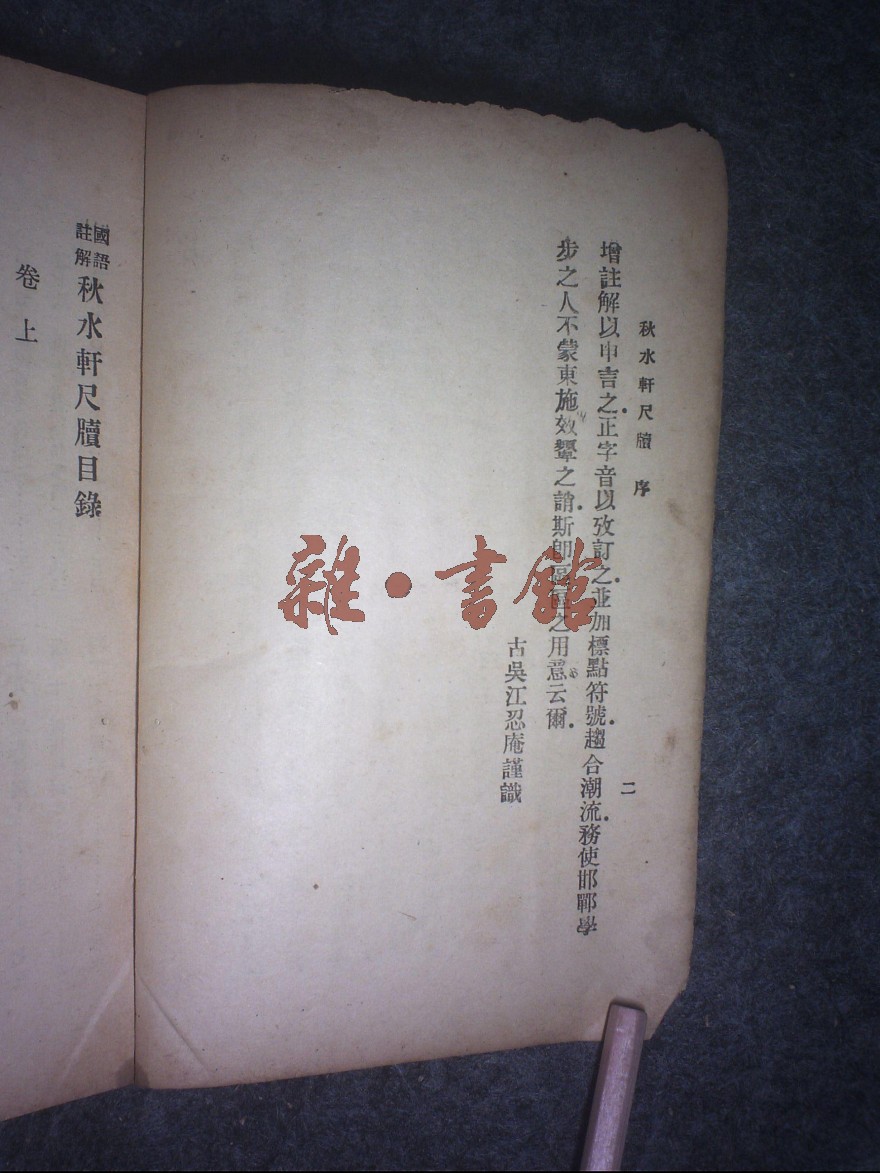 秋水軒尺牘 序
二
增註解以申言之.正字音以攷訂之.並加標點符號.趨合潮流.務使邯鄲學
步之人不蒙東施效顰之誚.斯卽區區之用意云爾.
古吳江忍庵謹識
國語註解秋水軒尺牘目錄
卷上
雜·書館